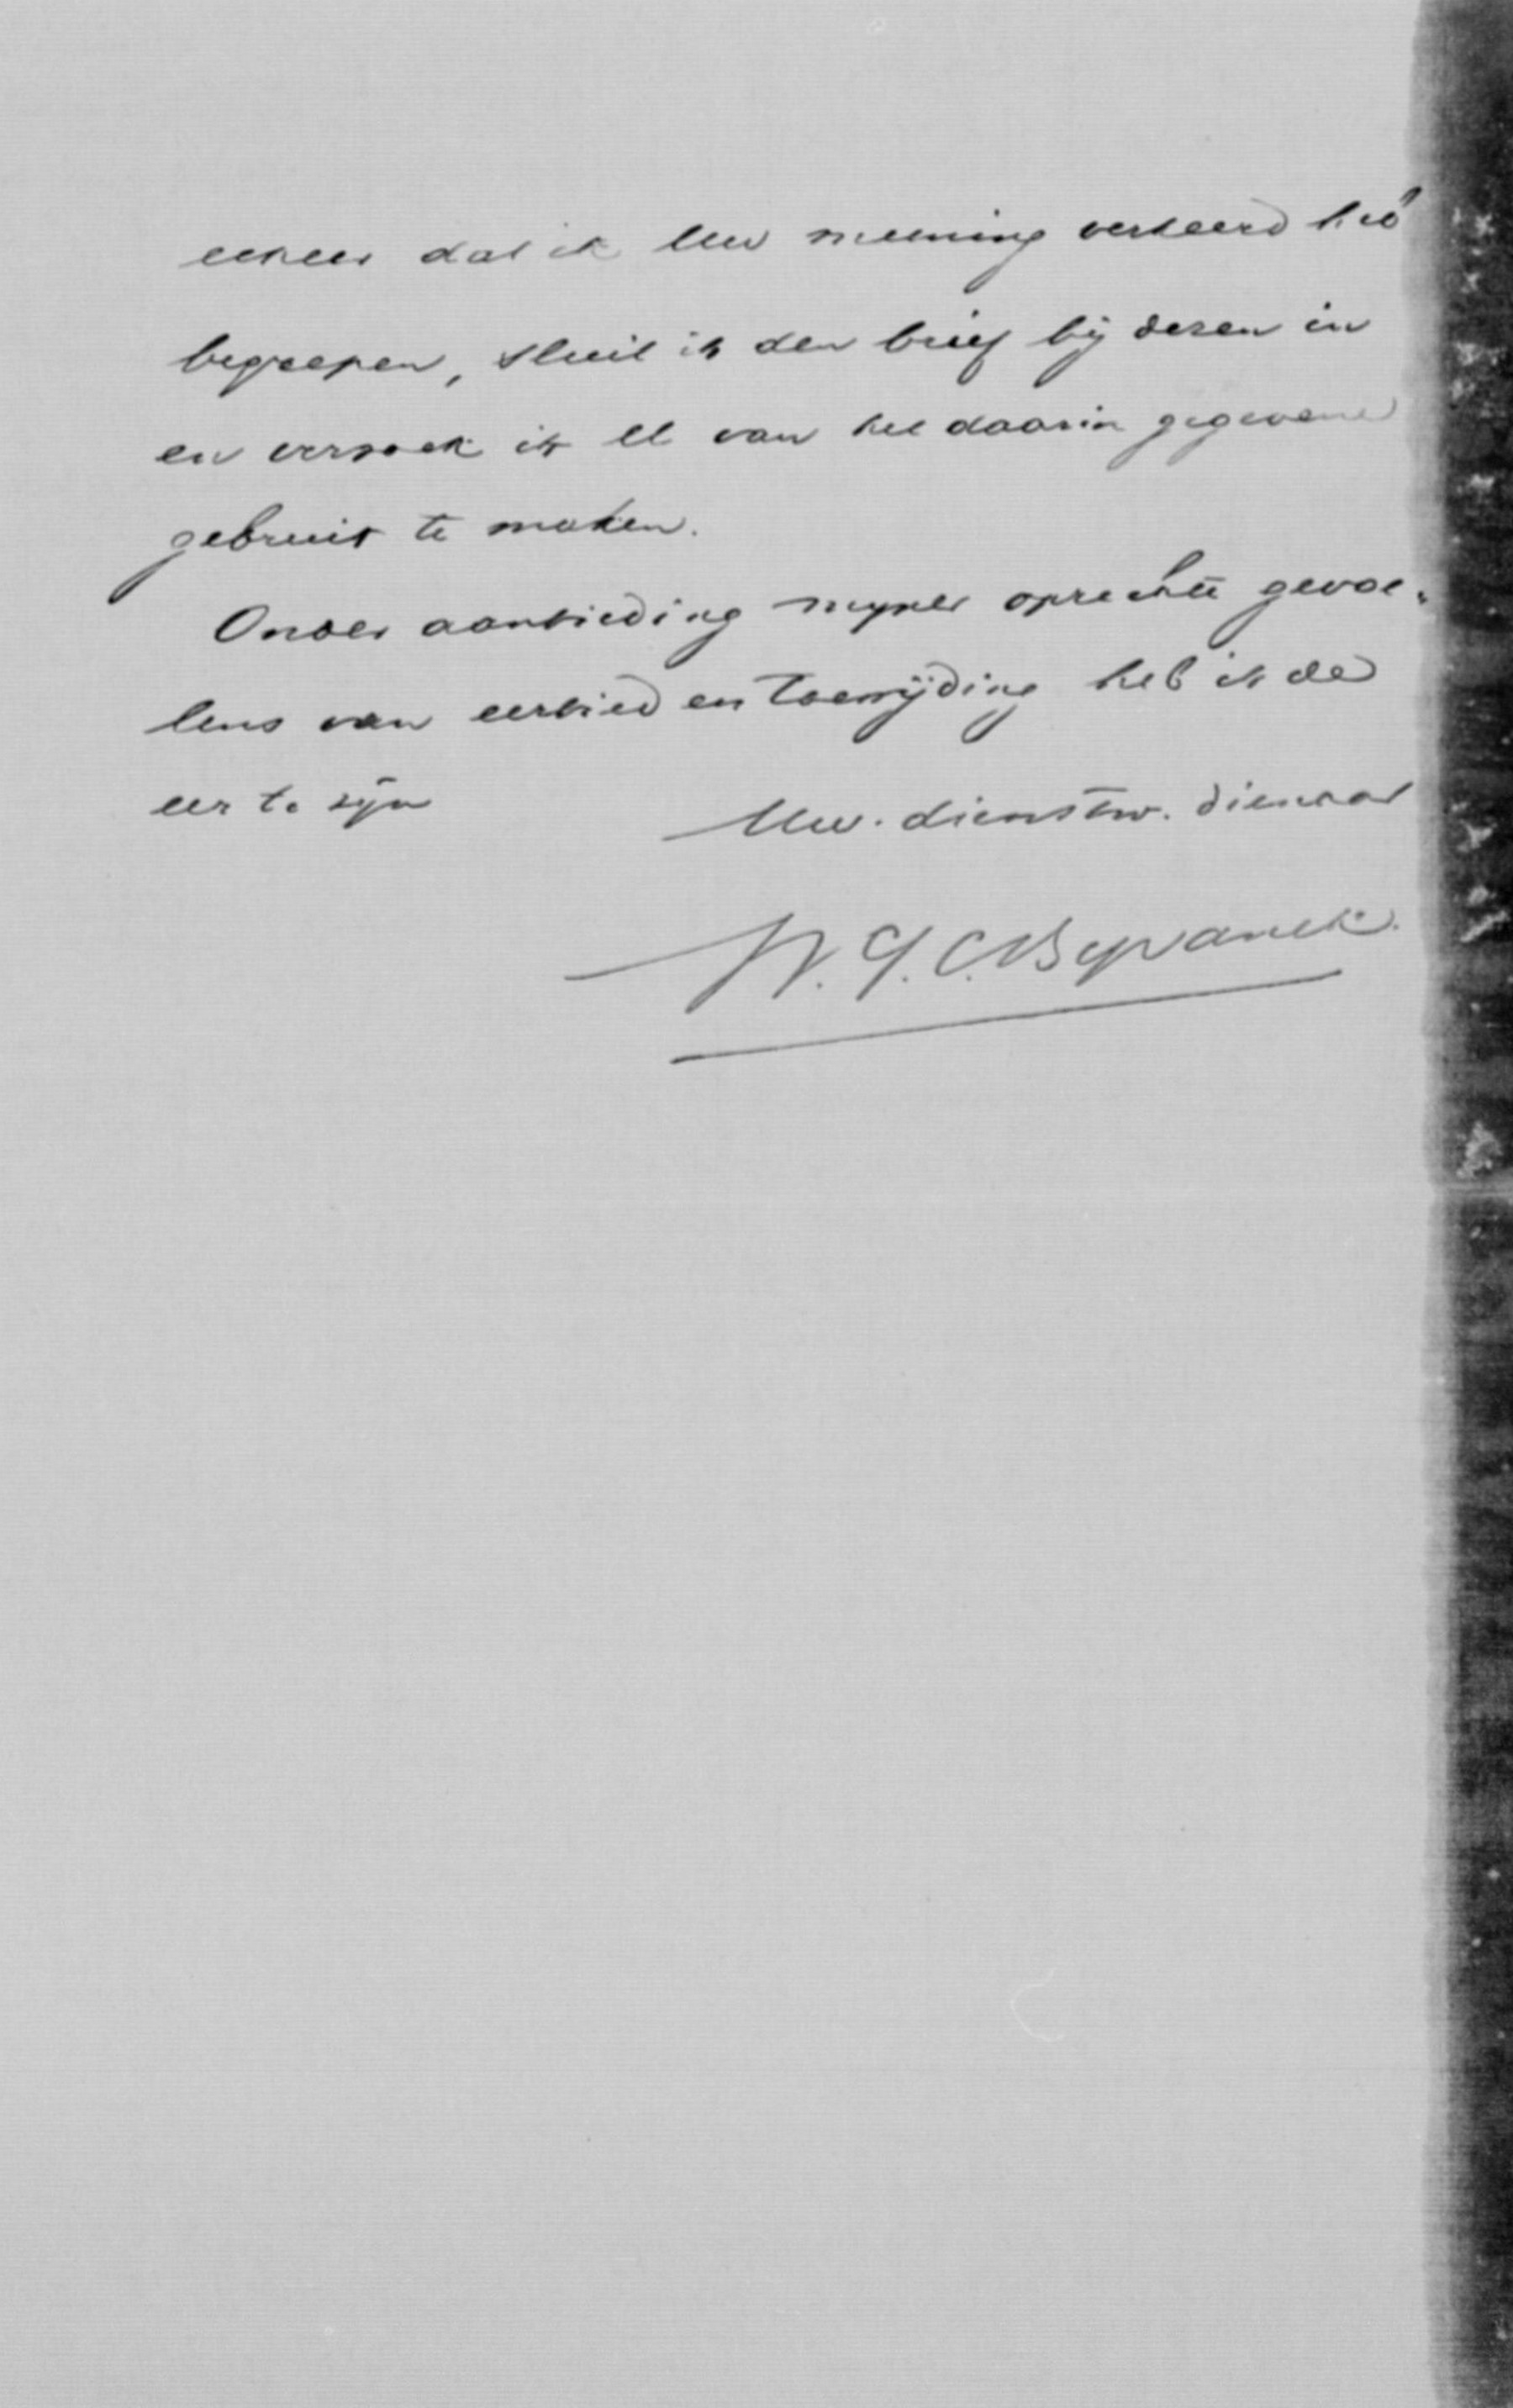 zeker dat ik Uw meening verkeerd heb
begrepen, sluit ik den brief bij dezen in
en verzoek ik U van het daarin gegevene
gebruik te maken.
Onder aanbieding mijner oprechte gevoe-
lens van eerbied en toewijding heb ik de
eer te zijn
Uw. dienstw. dienaar
W. G. C. Byvanck.